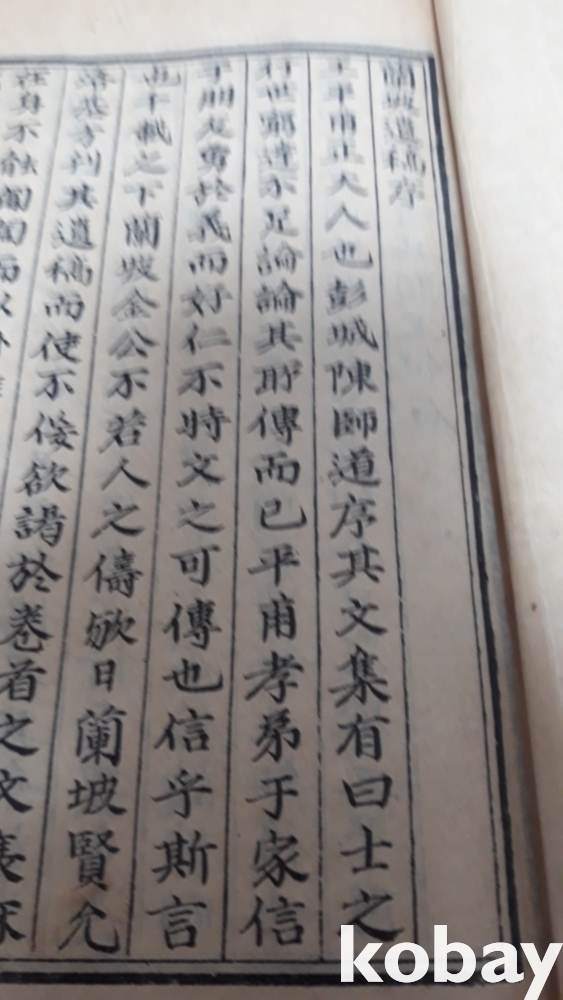 蘭坡遺稿序
王平甫正大人也彭城陳師道序其文集有曰士之
行世窮達不足論論其所傳而已平甫孝弟于家信
于朋友勇於義而好仁不時文之可傳也信乎斯言
也千載之下蘭坡金公不若人之儔歟日蘭坡賢允
基方刊其遺稿而使不佞欲謁於卷首之文
在身不能
kobay